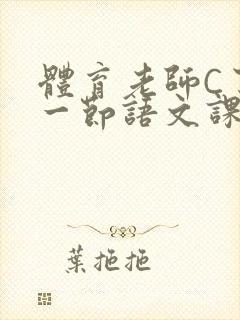 體育老師C
一節語文課
葉拖拖